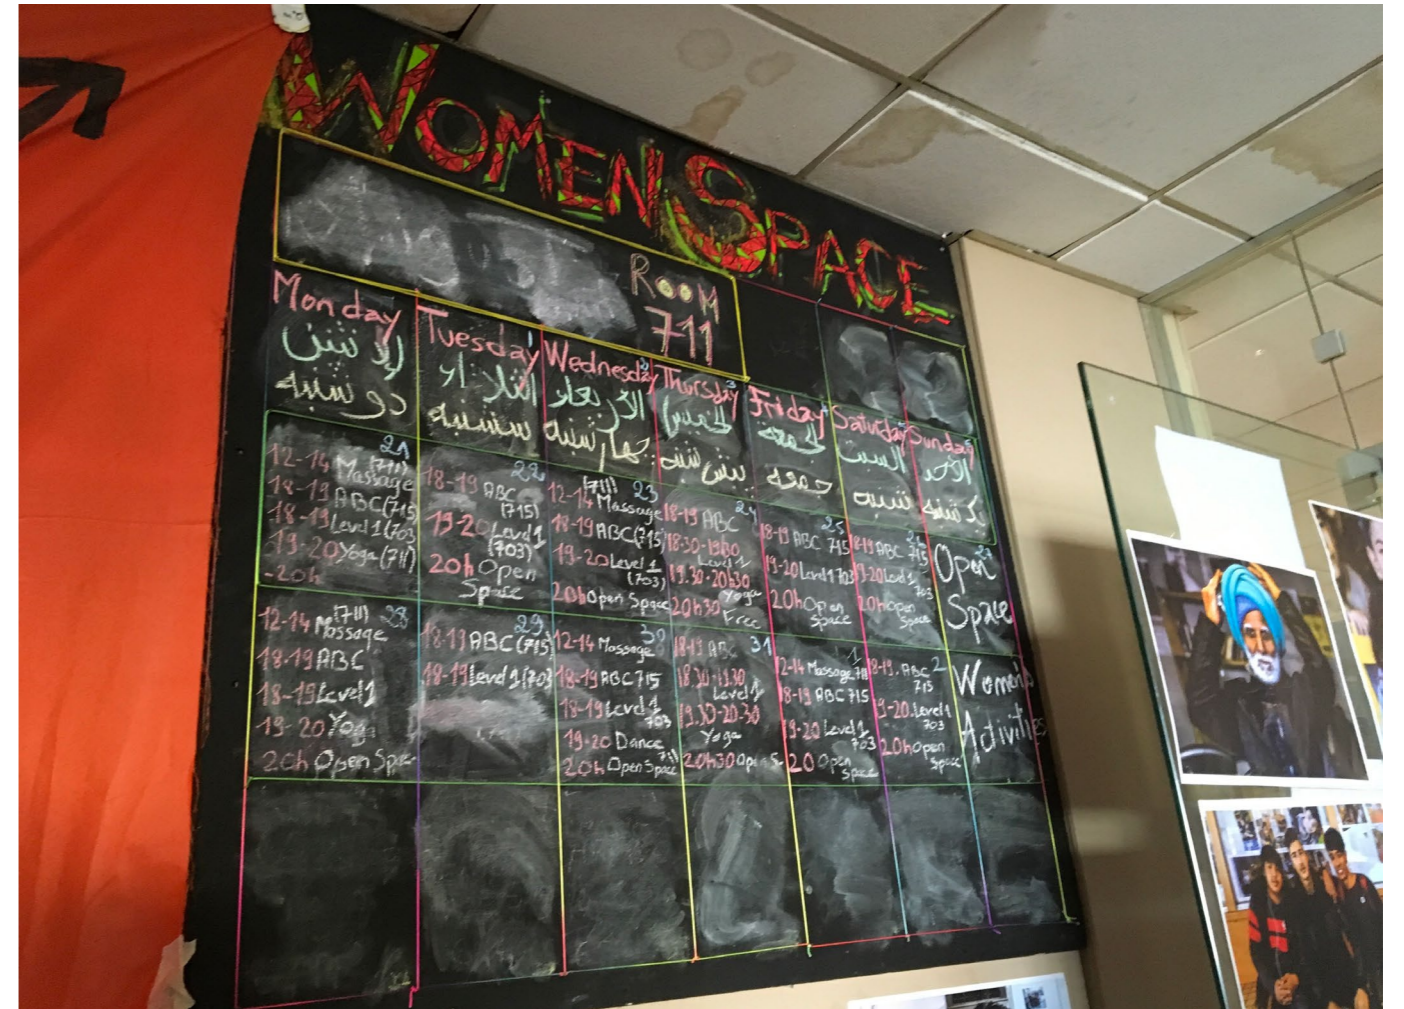 WOMEN SPACE
ROOM
711
Monday
دو شنبه
Tuesday
Wednesday
الأربعاء
چهار شنبه
Thursday
الخميس
Friday
الجمعة
جمعه
Saturday
السبت
شنبه
Sunday
الأحد
12-14 (711)
Massage
18-19 ABC (715
18-19 Level 1 (703
19-20 Yoga (711)
-20h
22
18-19 ABC
(715)
19-20 Level 1
(703)
20h Open
Space
(711) 23
12-14 Massage
18-19 ABC (715
19-20 Level 1
(703)
20h Open Space
24
18-19 ABC
18:30-19:30
Level 1
19.30-20h30
Yoga
20h30 Free
25
18-19 ABC 715
19-20 Level 1 703
20h Open
Space
18-19 ABC 715
19-20 Level 1
703
20h Open
Space
27
Open
Space
(711) 28
12-14 Massage
18-19 ABC
18-19 Level 1
19-20 Yoga
20h Open Space
29
18-19 ABC (715)
18-19 Level 1 (703
30
12-14 Massage
18-19 ABC 715
18-19 Level 1
703
19-20 Dance
711
20h Open Space
18-19 ABC 31
18.30-19.30
Level 1
19.30-20-30
Yoga
20h30 Open S
1
12-14 Massage 711
18-19 ABC 715
19-20 Level 1
703
20 Open
Space
18-19. ABC 2
715
19-20. Level 1
703
20h Open
Space
Women's
Activities